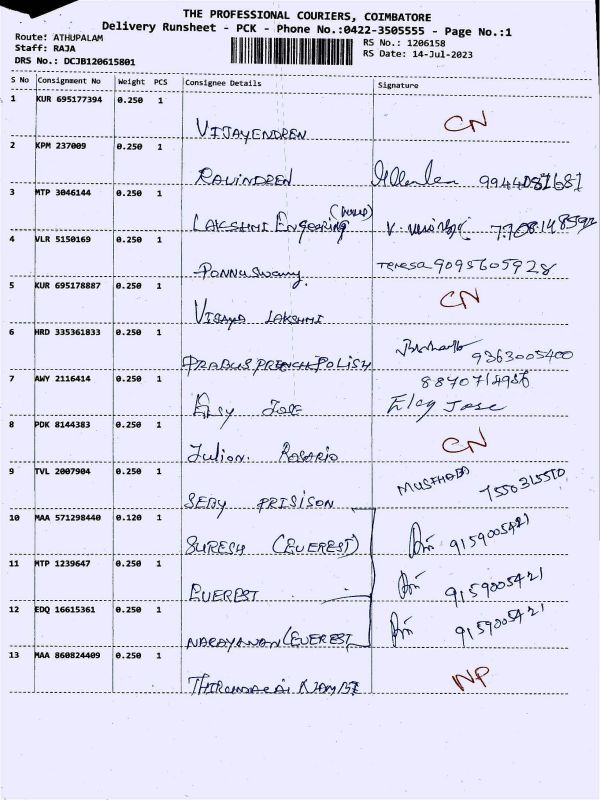 THE PROFESSIONAL COURIERS, COIMBATORE
Delivery Runsheet - PCK - Phone No.:0422-3505555 - Page No.:1
Route: ATHUPALAM
RS No.: 1206158
Staff: RAJA
RS Date: 14-Jul-2023
DRS No.: DCJB120615801
S No Consignment No Weight PCS Consignee Details Signature
1 KUR 695177394 0.250 1
VIJAYENDREN CN
2 KPM 237009 0.250 1
RAVINDREN 9944087687
3 MTP 3046144 0.250 1
LAKSHMI ENGEERING 7708148592
4 VLR 5150169 0.250 1
PONNUSWAMY Teresa 9095605928
5 KUR 695178887 0.250 1
VIJAYA LAKSHMI CN
6 HRD 335361833 0.250 1
PRABUS FRENCH POLISH 9363005400
7 AWY 2116414 0.250 1 8870714956
ELSY JOSE Elcy Jose
8 PDK 8144383 0.250 1
Julian. ROSARIO CN
9 TVL 2007904 0.250 1
SEBY PRISISON 7550315510
10 MAA 571298440 0.120 1
SURESH (EVEREST) 9159005421
11 MTP 1239647 0.250 1
EVEREST 9159005421
12 EDQ 16615361 0.250 1
NARAYANAN (EVEREST 9159005421
13 MAA 860824409 0.250 1
THIRUMALAI NAMBI NP